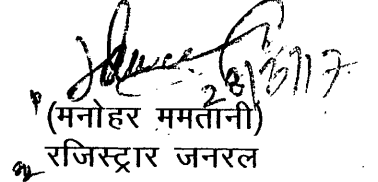 28/3/17
(मनोहर ममतानी)
रजिस्ट्रार जनरल